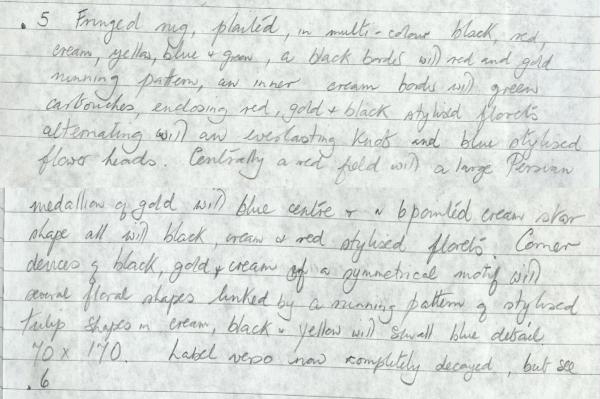 .5 Fringed rug, plaited, in multi-colour black, red,
cream, yellow, blue & green, a black border with red and gold
running pattern, an inner cream border with green
cartouches, enclosing red, gold & black stylised florets
alternating with an everlasting knot and blue stylised
flower heads. Centrally a red field with a large Persian
medallion of gold with blue centre & 6 pointed cream star
shape all with black, cream & red stylised florets. Corner
devices of black, gold & cream of a symmetrical motif with
several floral shapes linked by a running pattern of stylised
tulip shapes in cream, black & yellow with small blue detail
70 x 170. Label verso now completely decayed, but see
.6